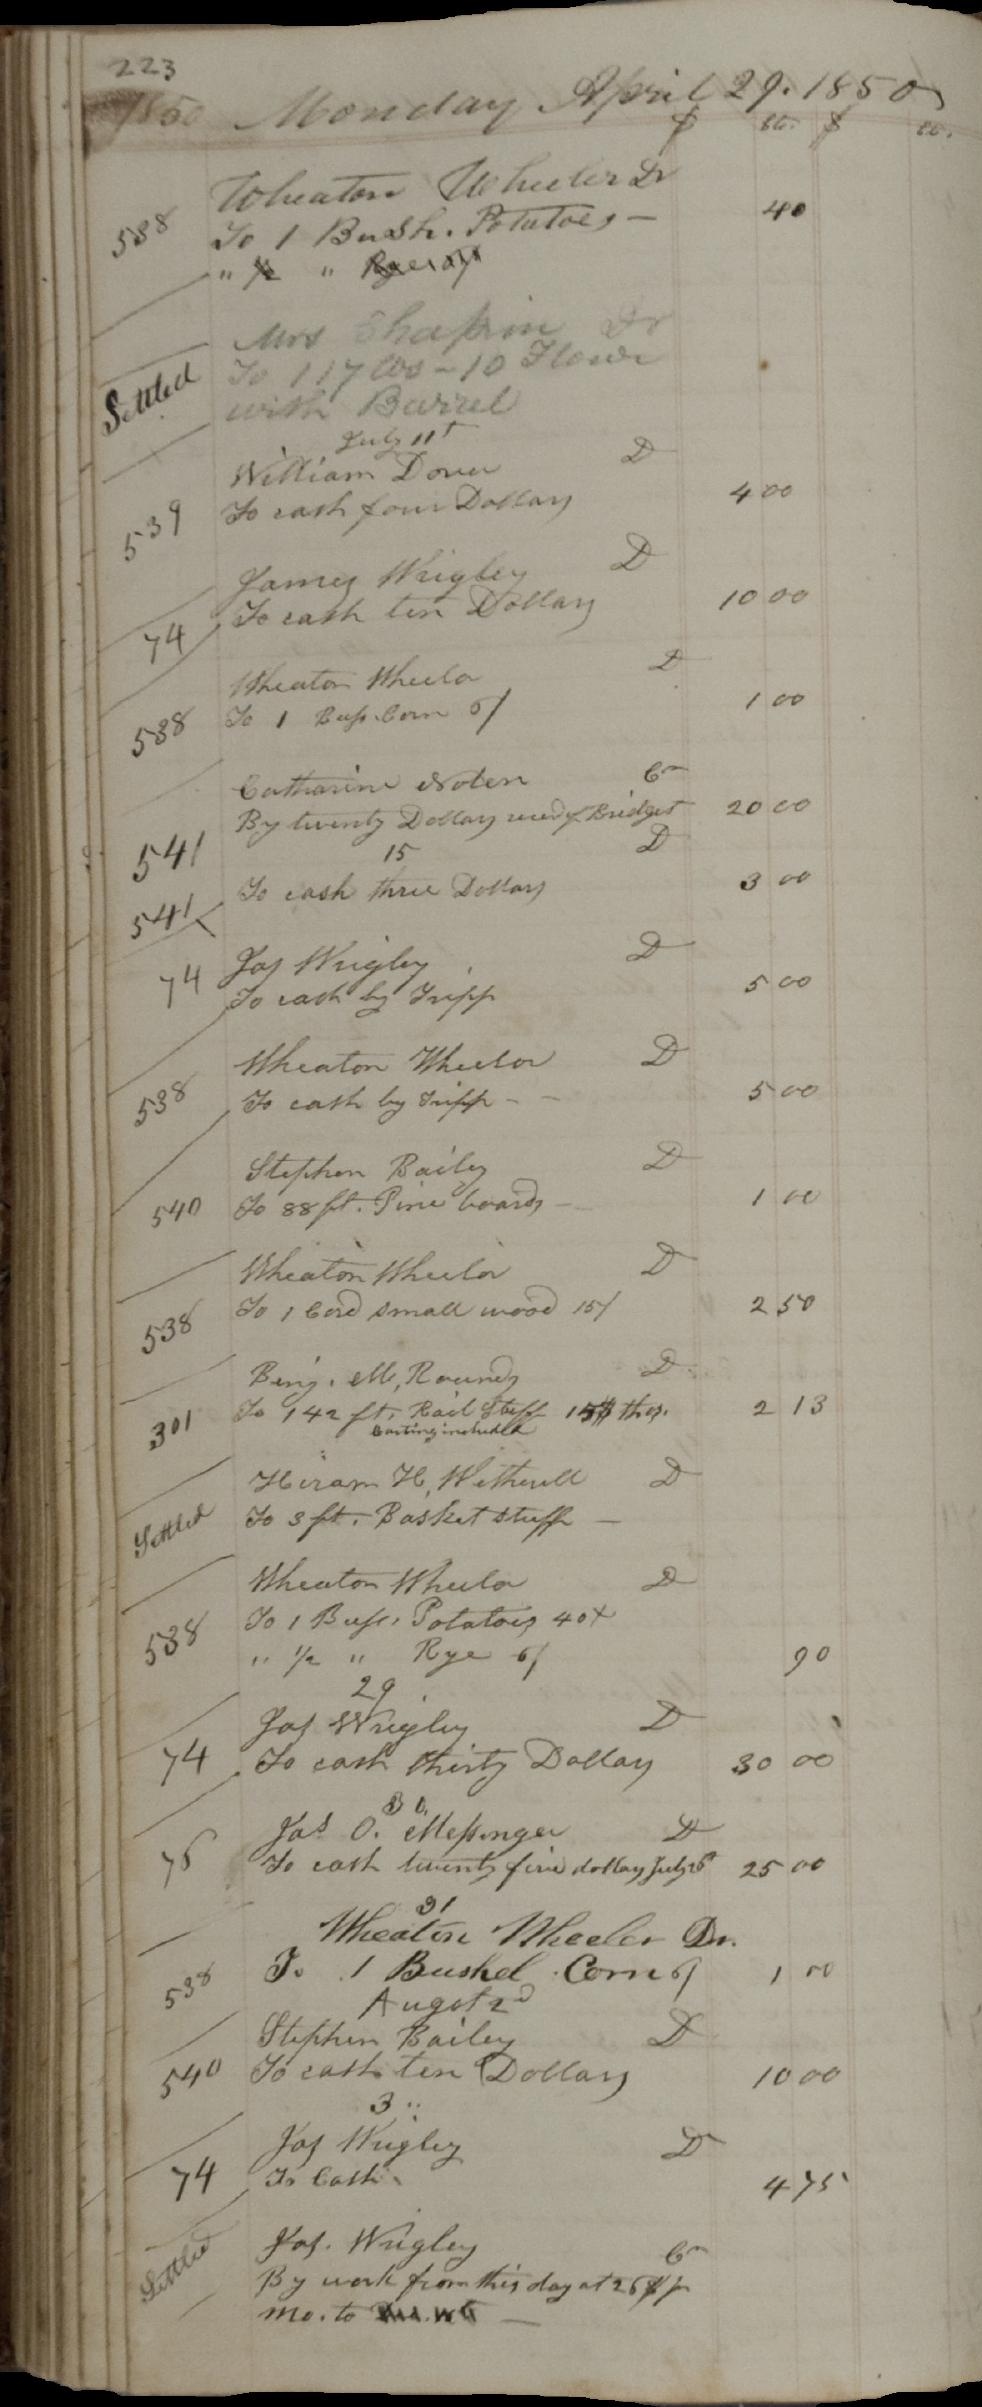 223
1850 Monday April 29. 1850
$ cts. $ cts.
Wheaton Wheeler Dr
538 To 1 Bush. Potatoes — 40
" ½ " Rye
Mrs Chapin Dr
Settled To 117 lbs - 10 Flour
with Barrel
July 11t
William Dover D
539 To cash four Dollars 4 00
James Wrigley D
74 To cash ten Dollars 10 00
Wheaton Wheelor D
538 To 1 Bush. Corn 6/ 1 00
Catharine Noten Cr
541 By twenty Dollars recd of Bridget 20 00
15 D
541 To cash three Dollars 3 00
Jas Wrigley D
74 To cash by Tripp 5 00
Wheaton Wheelor D
538 To cash by Tripp - - 5 00
Stephen Bailey D
540 To 88 ft. Pine boards — 1 00
Wheaton Wheelor D
538 To 1 Cord small wood 15/ 2 50
Benj. M. Rounds D
301 To 142 ft. Rail Stuff 15$ thos. 2 13
Carting included
Hiram H. Witherell D
Settled To 3 ft. Basket stuff —
Wheaton Wheelor D
538 To 1 Bush. Potatoes 40
" ½ " Rye 6/ 90
29
Jas Wrigley D
74 To cash thirty Dollars 30 00
30.
Jas O. Messinger D
76 To cash twenty five dollars July 26t 25 00
31
Wheaton Wheeler Dr.
538 To 1 Bushel Corn 6/ 1 00
August 2d
Stephen Bailey D
540 To cash ten Dollars 10 00
3 "
Jas Wrigley D
74 To Cash 4 75
Jas. Wrigley Cr
Settled By work from this day at 26$ pr
mo. to —